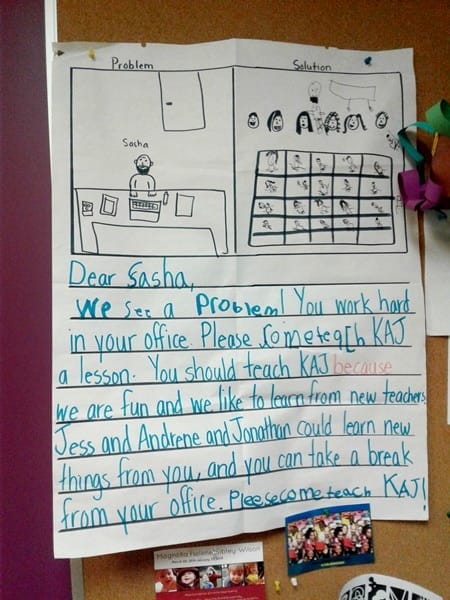 Problem
Solution
Sasha
Dear Sasha,
We see a Problem! You work hard
in your office. Please come teach KAJ
a lesson. You should teach KAJ because
we are fun and we like to learn from new teachers.
Jess and Andrene and Jonathan could learn new
things from you, and you can take a break
from your office. Pleese come teach KAJ!
Magnolia Helene Sibley Wilson